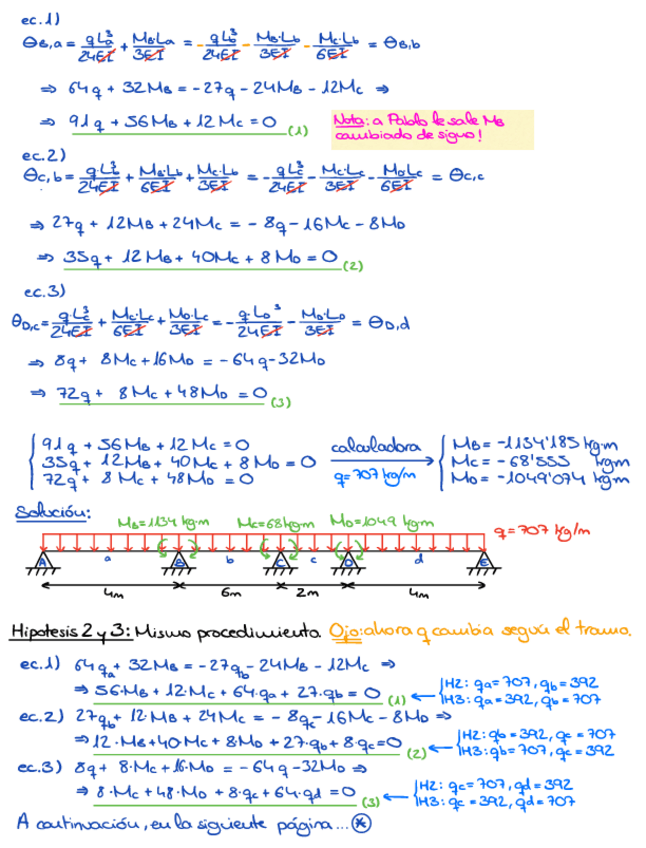 ec.1)
θB,a = qLa³/24EI + MB·La/3EI = -qLb³/24EI - MB·Lb/3EI - Mc·Lb/6EI = θB,b
⇒ 64q + 32MB = -27q - 24MB - 12Mc ⇒
⇒ 91q + 56MB + 12Mc = 0 (1)
Nota: a Pablo le sale MB
cambiado de signo!
ec.2)
θc,b = q·Lb³/24EI + MB·Lb/6EI + Mc·Lb/3EI = -qLc³/24EI - Mc·Lc/3EI - MD·Lc/6EI = θc,c
⇒ 27q + 12MB + 24Mc = -8q - 16Mc - 8MD
⇒ 35q + 12MB + 40Mc + 8MD = 0 (2)
ec.3)
θD,c = q·Lc³/24EI + Mc·Lc/6EI + MD·Lc/3EI = -q·LD³/24EI - MD·LD/3EI = θD,d
⇒ 8q + 8Mc + 16MD = -64q - 32MD
⇒ 72q + 8Mc + 48MD = 0 (3)
91q + 56MB + 12Mc = 0
35q + 12MB + 40Mc + 8MD = 0
72q + 8Mc + 48MD = 0
calculadora
q=707 kg/m
MB = -1134'185 kg·m
Mc = -68'555 kg·m
MD = -1049'074 kg·m
Solución:
MB=1134 kg·m Mc=68kg·m MD=1049 kg·m
q=707 kg/m
A a B b C c D d E
4m 6m 2m 4m
Hipotesis 2 y 3: Mismo procedimiento. Ojo: ahora q cambia según el tramo.
ec.1) 64qa + 32MB = -27qb - 24MB - 12Mc ⇒
⇒ 56·MB + 12·Mc + 64·qa + 27·qb = 0 (1) ← H2: qa=707, qb=392
H3: qa=392, qb=707
ec.2) 27qb + 12·MB + 24Mc = -8qc - 16Mc - 8MD ⇒
⇒ 12·MB + 40Mc + 8MD + 27·qb + 8qc = 0 (2) ← H2: qb=392, qc=707
H3: qb=707, qc=392
ec.3) 8q + 8·Mc + 16·MD = -64q - 32MD ⇒
⇒ 8·Mc + 48·MD + 8·qc + 64·qd = 0 (3) ← H2: qc=707, qd=392
H3: qc=392, qd=707
A continuación, en la siguiente página... *